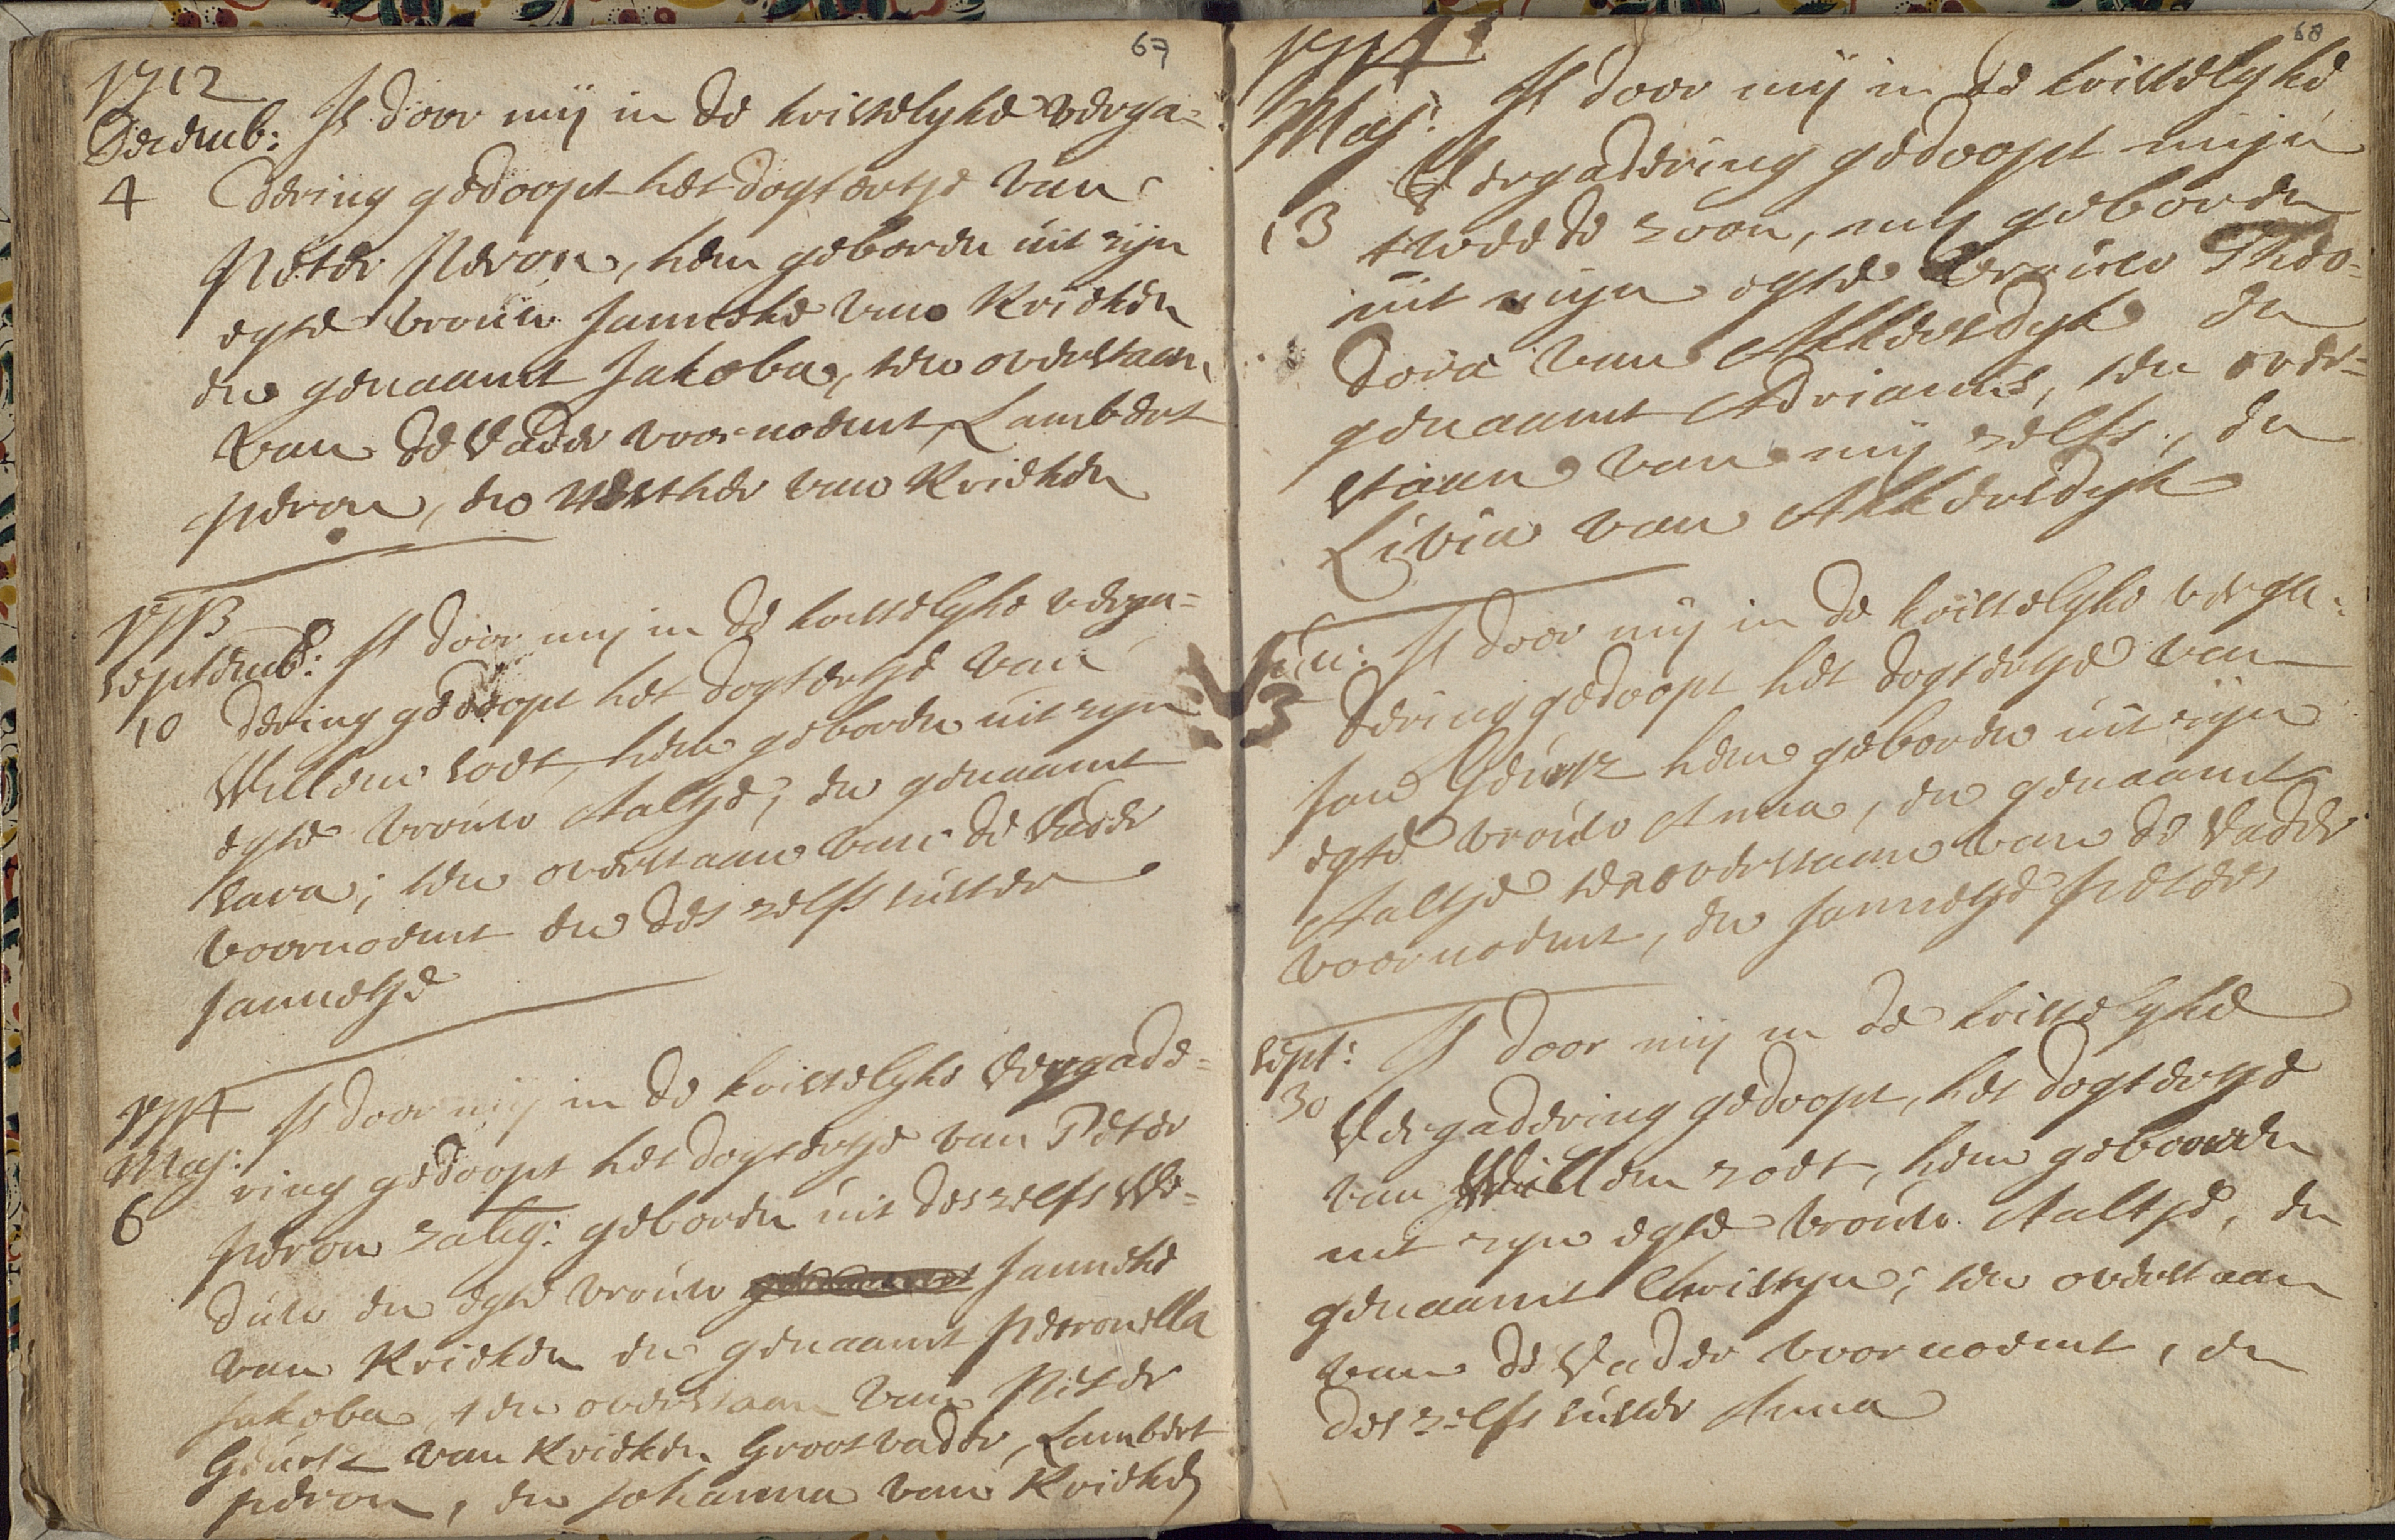 67
1712
Decemb: Is door mij in de kristelyke verga=
4 dering gedoopt het dogtertje van
Peter Peron, hem geboren uit zijn
egte vrouw Janneke van Krieken
en genaamt Jakoba, ten overstaan
van de Vader voornoemt, Lambert
Peron, en Nelltker van Krieken
1713
Septemb: Is door mij in de kristelyke verga=
10 dering gedoopt het dogtertje van
Willem soet, hem geboren uit zyn
egte vrouw Aaltje, en genaamt
Sara; ten overstaan van de Vader
voornoemt en des zelfs suster
Jannetje
1714
Maj: Is door mij in de kristelyke Vergade=
6 ring gedoopt het dogtertje van Peter
Peron zalig: geboren uit deszelfs We=
duw en egte vrouw Janneke
van Krieken en genaamt Petronella
Jakoba, ten overstaan van Peter
Geurtz van Krieken Grootvader, Lambert
Peron, en Johanna van Krieken
68
1714
Maj: Is door mij in de kristelyke
Vergadering gedoopt mijn
13 tweede zoon, mij geboren
uit mijn egte Vrouw Theo=
dora van Akkersdyk en
genaamt Adrianus, ten over=
staan van mij zelfs, en
Livia van Akkersdyk
Jun: Is door mij in de kristelyke verga=
3 dering gedoopt het dogtertje van
Jan Geurtz hem geboren uit zijn
egte vrouw Anna, en genaamt
Aaltje ten overstaan van de Vader
voornoemt, en Jannetje Peters
Sept: Is door mij in de kristelyke
30 Vergadering gedoopt, het dogtertje
van Willem zoet, hem gebooren
uit zyn egte vrouw Aaltje, en
genaamt Christyn; ten overstaan
van de Vader voornoemt, en
des zelfs suster Anna